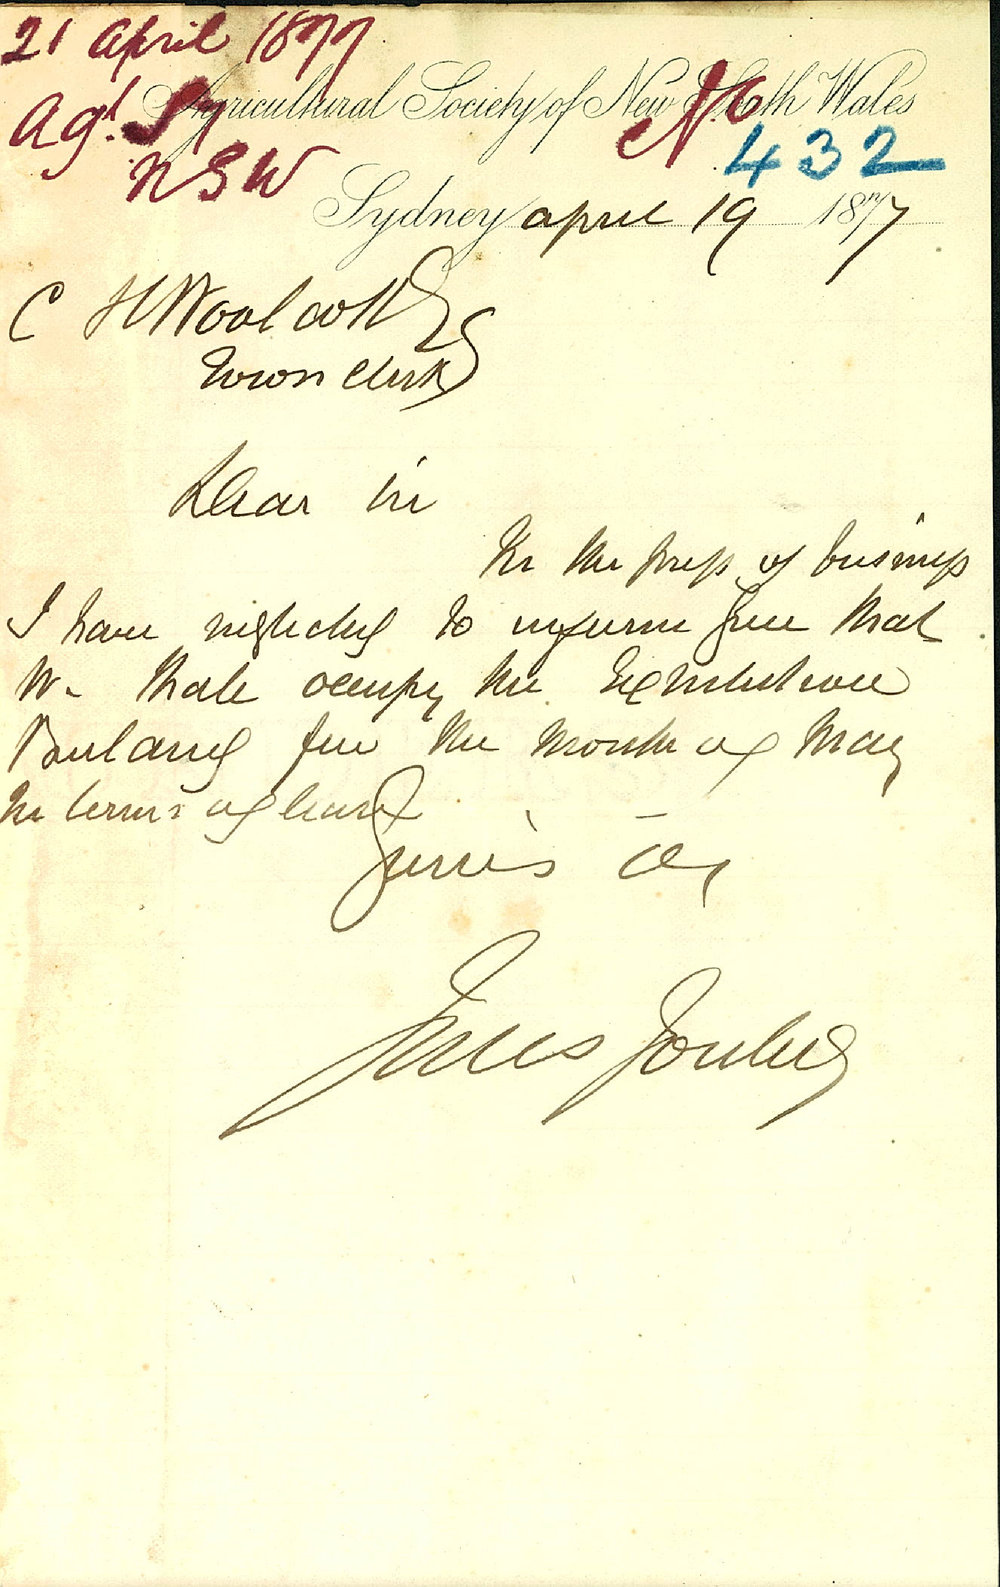 21 April 1877
Agl. S
NSW
No
432
Agricultural Society of New South Wales
Sydney April 19 1877
C H Woolcott Esq
Town Clerk
Dear Sir
In the press of business
I have neglected to inform you that
we shall occupy the Exhibition
Building for the month of May
in terms of lease
Yours &c
Jules Joubert